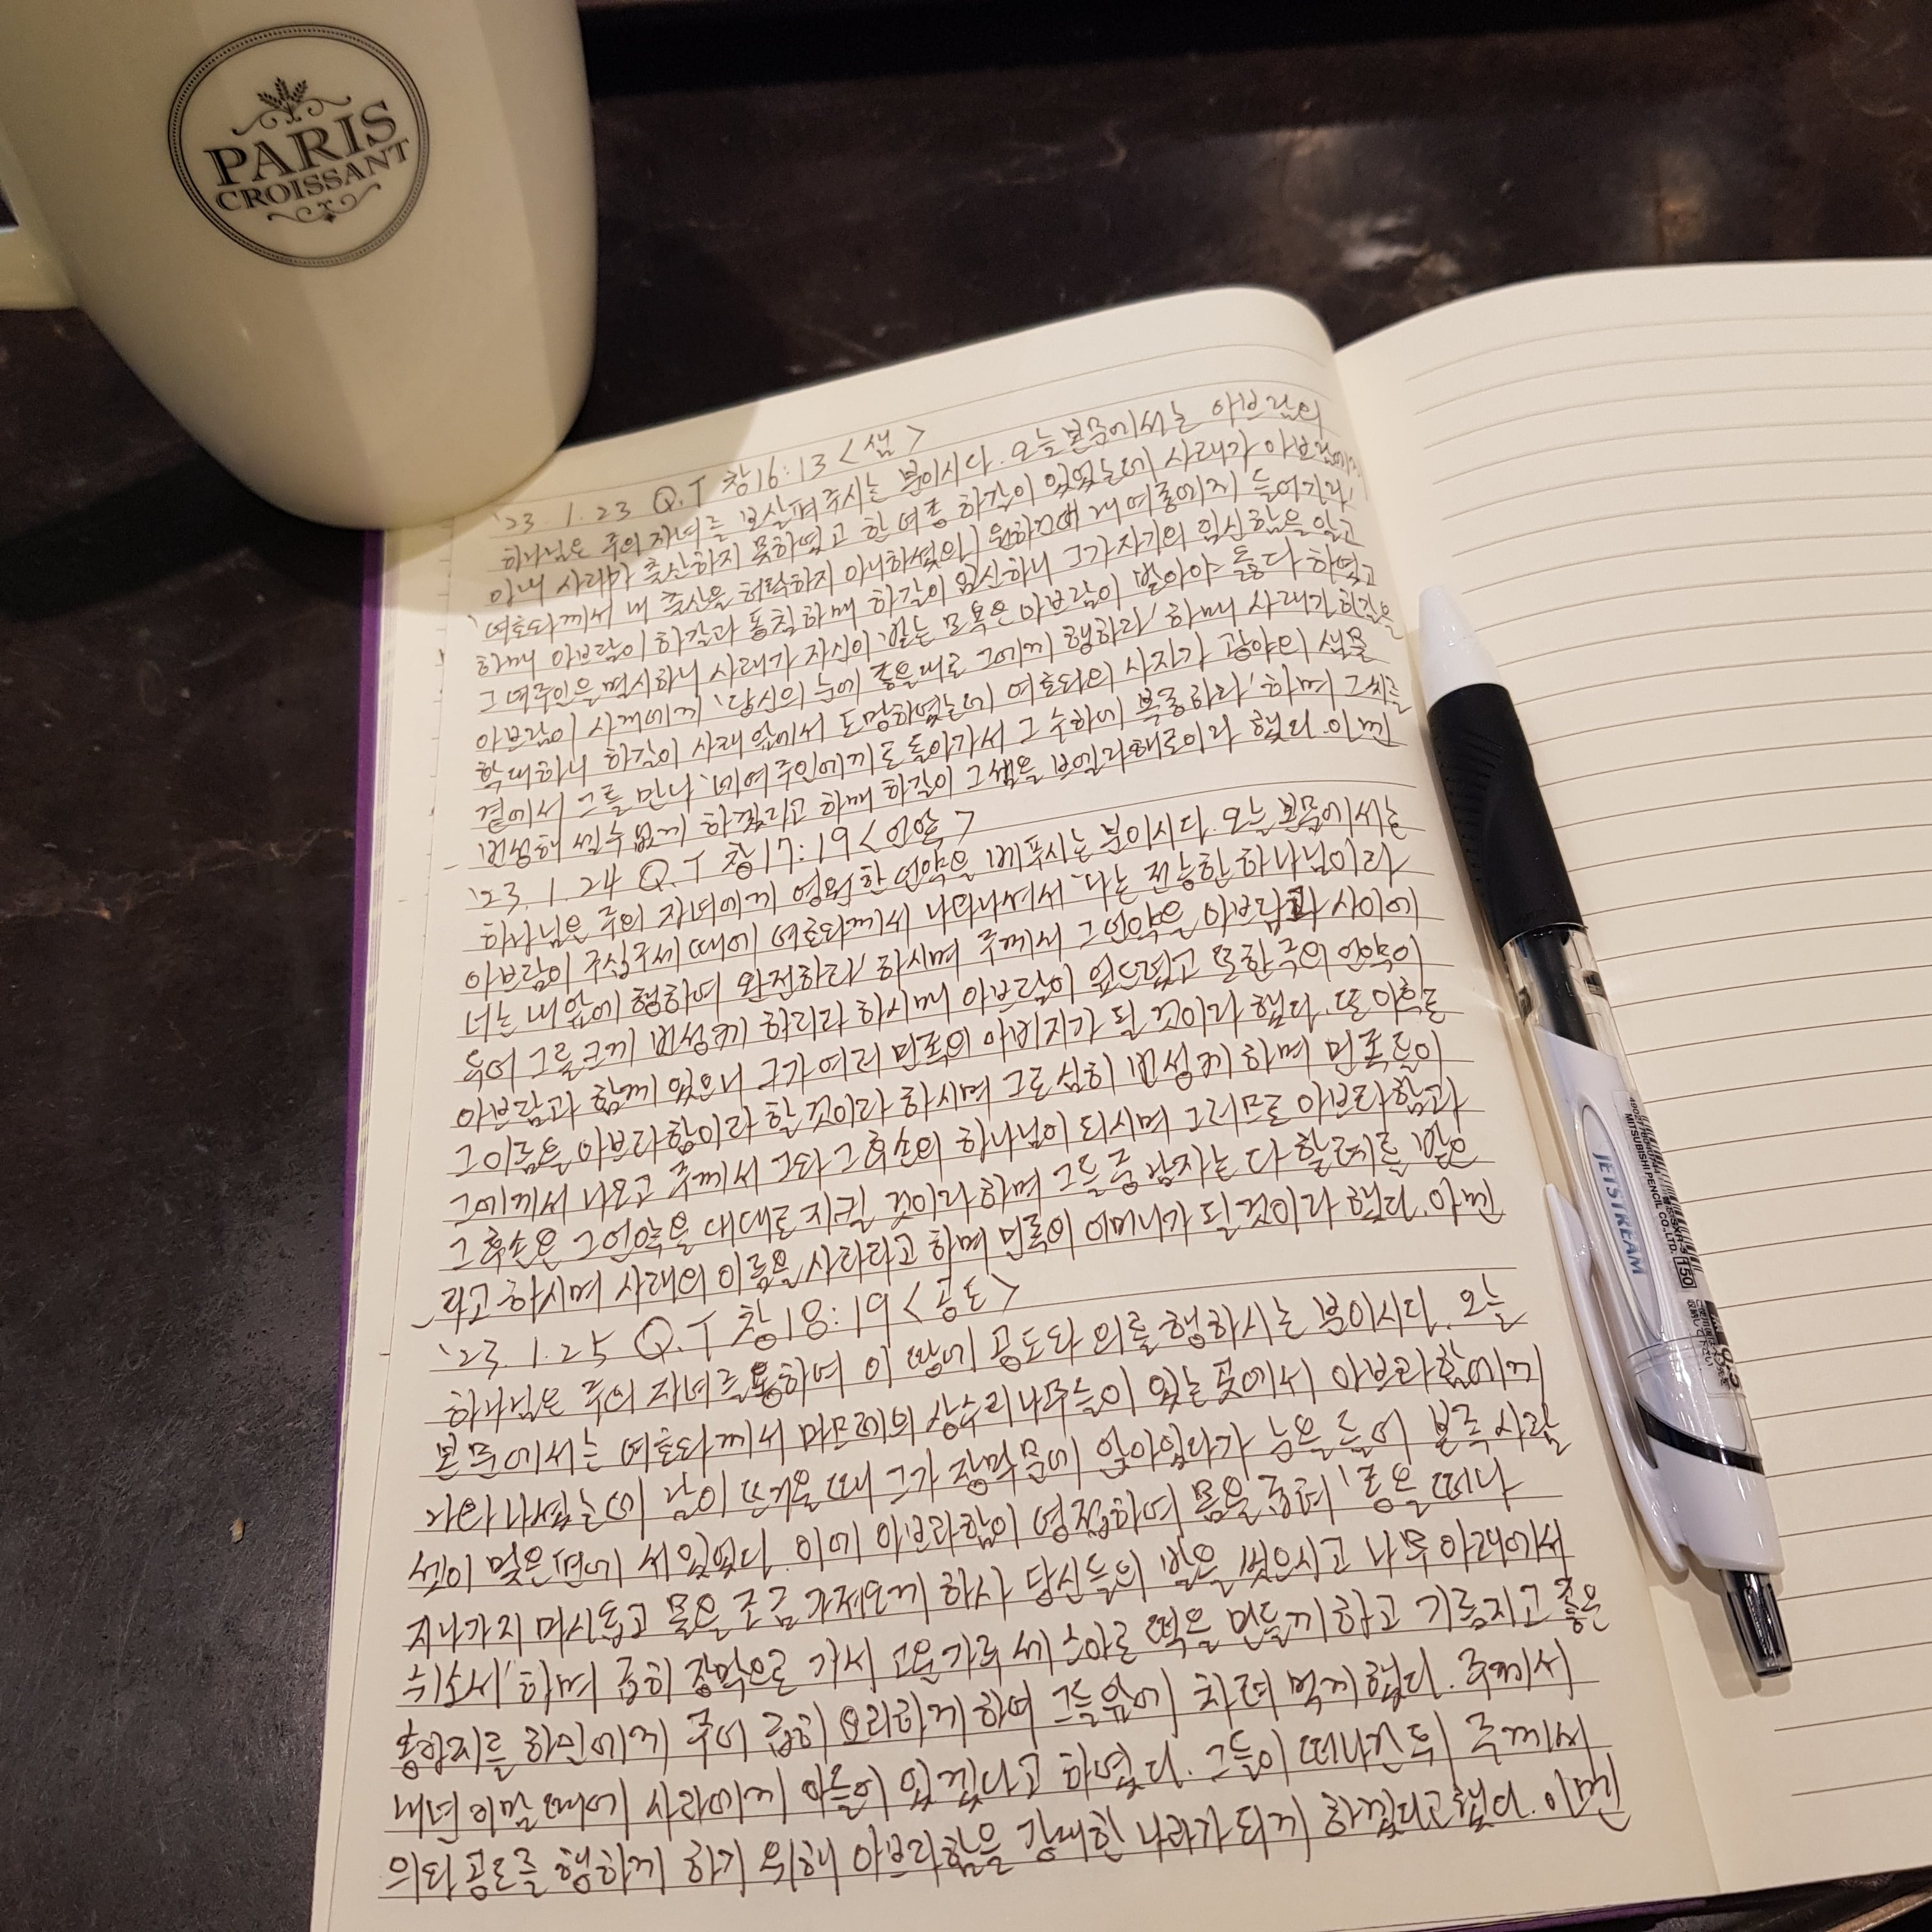 PARIS
CROISSANT
'23. 1. 23 Q.T 창16:13 <샘>
하나님은 주의 자녀를 보살펴주시는 분이시다. 오늘 본문에서는 아브람의
아내 사래가 출산하지 못하였고 한 여종 하갈이 있었는데 사래가 아브람에게
'여호와께서 내 출산을 허락하지 아니하셨으니 원하건대 내 여종에게 들어가라'
하매 아브람이 하갈과 동침하매 하갈이 임신하니 그가 자기의 임신함을 알고
그 여주인을 멸시하니 사래가 자신이 받는 모욕은 아브람이 받아야 옳다 하였고
아브람이 사래에게 '당신의 눈에 좋을대로 그에게 행하라' 하매 사래가 하갈을
학대하니 하갈이 사래 앞에서 도망하였는데 여호와의 사자가 광야의 샘물
곁에서 그를 만나 '네 여주인에게로 돌아가서 그 수하에 복종하라' 하며 그 씨를
번성해 셀수없게 하겠다고 하매 하갈이 그 샘을 브엘라해로이라 했다. 아멘
'23. 1. 24 Q.T 창17:19 <언약>
하나님은 주의 자녀에게 영원한 언약을 베푸시는 분이시다. 오늘 본문에서는
아브람이 구십구세 때에 여호와께서 나타나셔서 '나는 전능한 하나님이라
너는 내 앞에 행하여 완전하라' 하시며 주께서 그 언약을 아브람과 사이에
두어 그를 크게 번성케 하리라 하시매 아브람이 엎드렸고 또한 주의 언약이
아브람과 함께 있으니 그가 여러 민족의 아버지가 될 것이라 했다. 또 이후로
그 이름을 아브라함이라 할 것이라 하시며 그로 심히 번성케 하며 민족들이
그에게서 나오고 주께서 그와 그 후손의 하나님이 되시며 그러므로 아브라함과
그 후손은 그 언약을 대대로 지킬 것이라 하며 그들 중 남자는 다 할례를 받으
라고 하시며 사래의 이름을 사라라고 하며 민족의 어머니가 될것이라 했다. 아멘
'23. 1. 25 Q.T 창18:19 <공도>
하나님은 주의 자녀를 통하여 이 땅에 공도와 의를 행하시는 분이시다. 오늘
본문에서는 여호와께서 마므레의 상수리나무들이 있는 곳에서 아브라함에게
나타나셨는데 날이 뜨거울 때 그가 장막문에 앉아있다가 눈을 들어 본즉 사람
셋이 맞은편에 서있었다. 이에 아브라함이 영접하여 몸을 굽혀 '종을 떠나
지나가지 마시옵고 물을 조금 가져오게 하사 당신들의 발을 씻으시고 나무 아래에서
쉬소서' 하며 급히 장막으로 가서 고운 가루 세 스아로 떡을 만들게 하고 기름지고 좋은
송아지를 하인에게 주어 급히 요리하게 하여 그들 앞에 차려 먹게 했다. 주께서
내년 이맘 때에 사라에게 아들이 있겠다고 하였다. 그들이 떠나간 뒤 주께서
의와 공도를 행하게 하기 위해 아브라함을 강대한 나라가 되게 하겠다고 했다. 아멘
JETSTREAM
MITSUBISHI PENCIL CO., LTD.
150